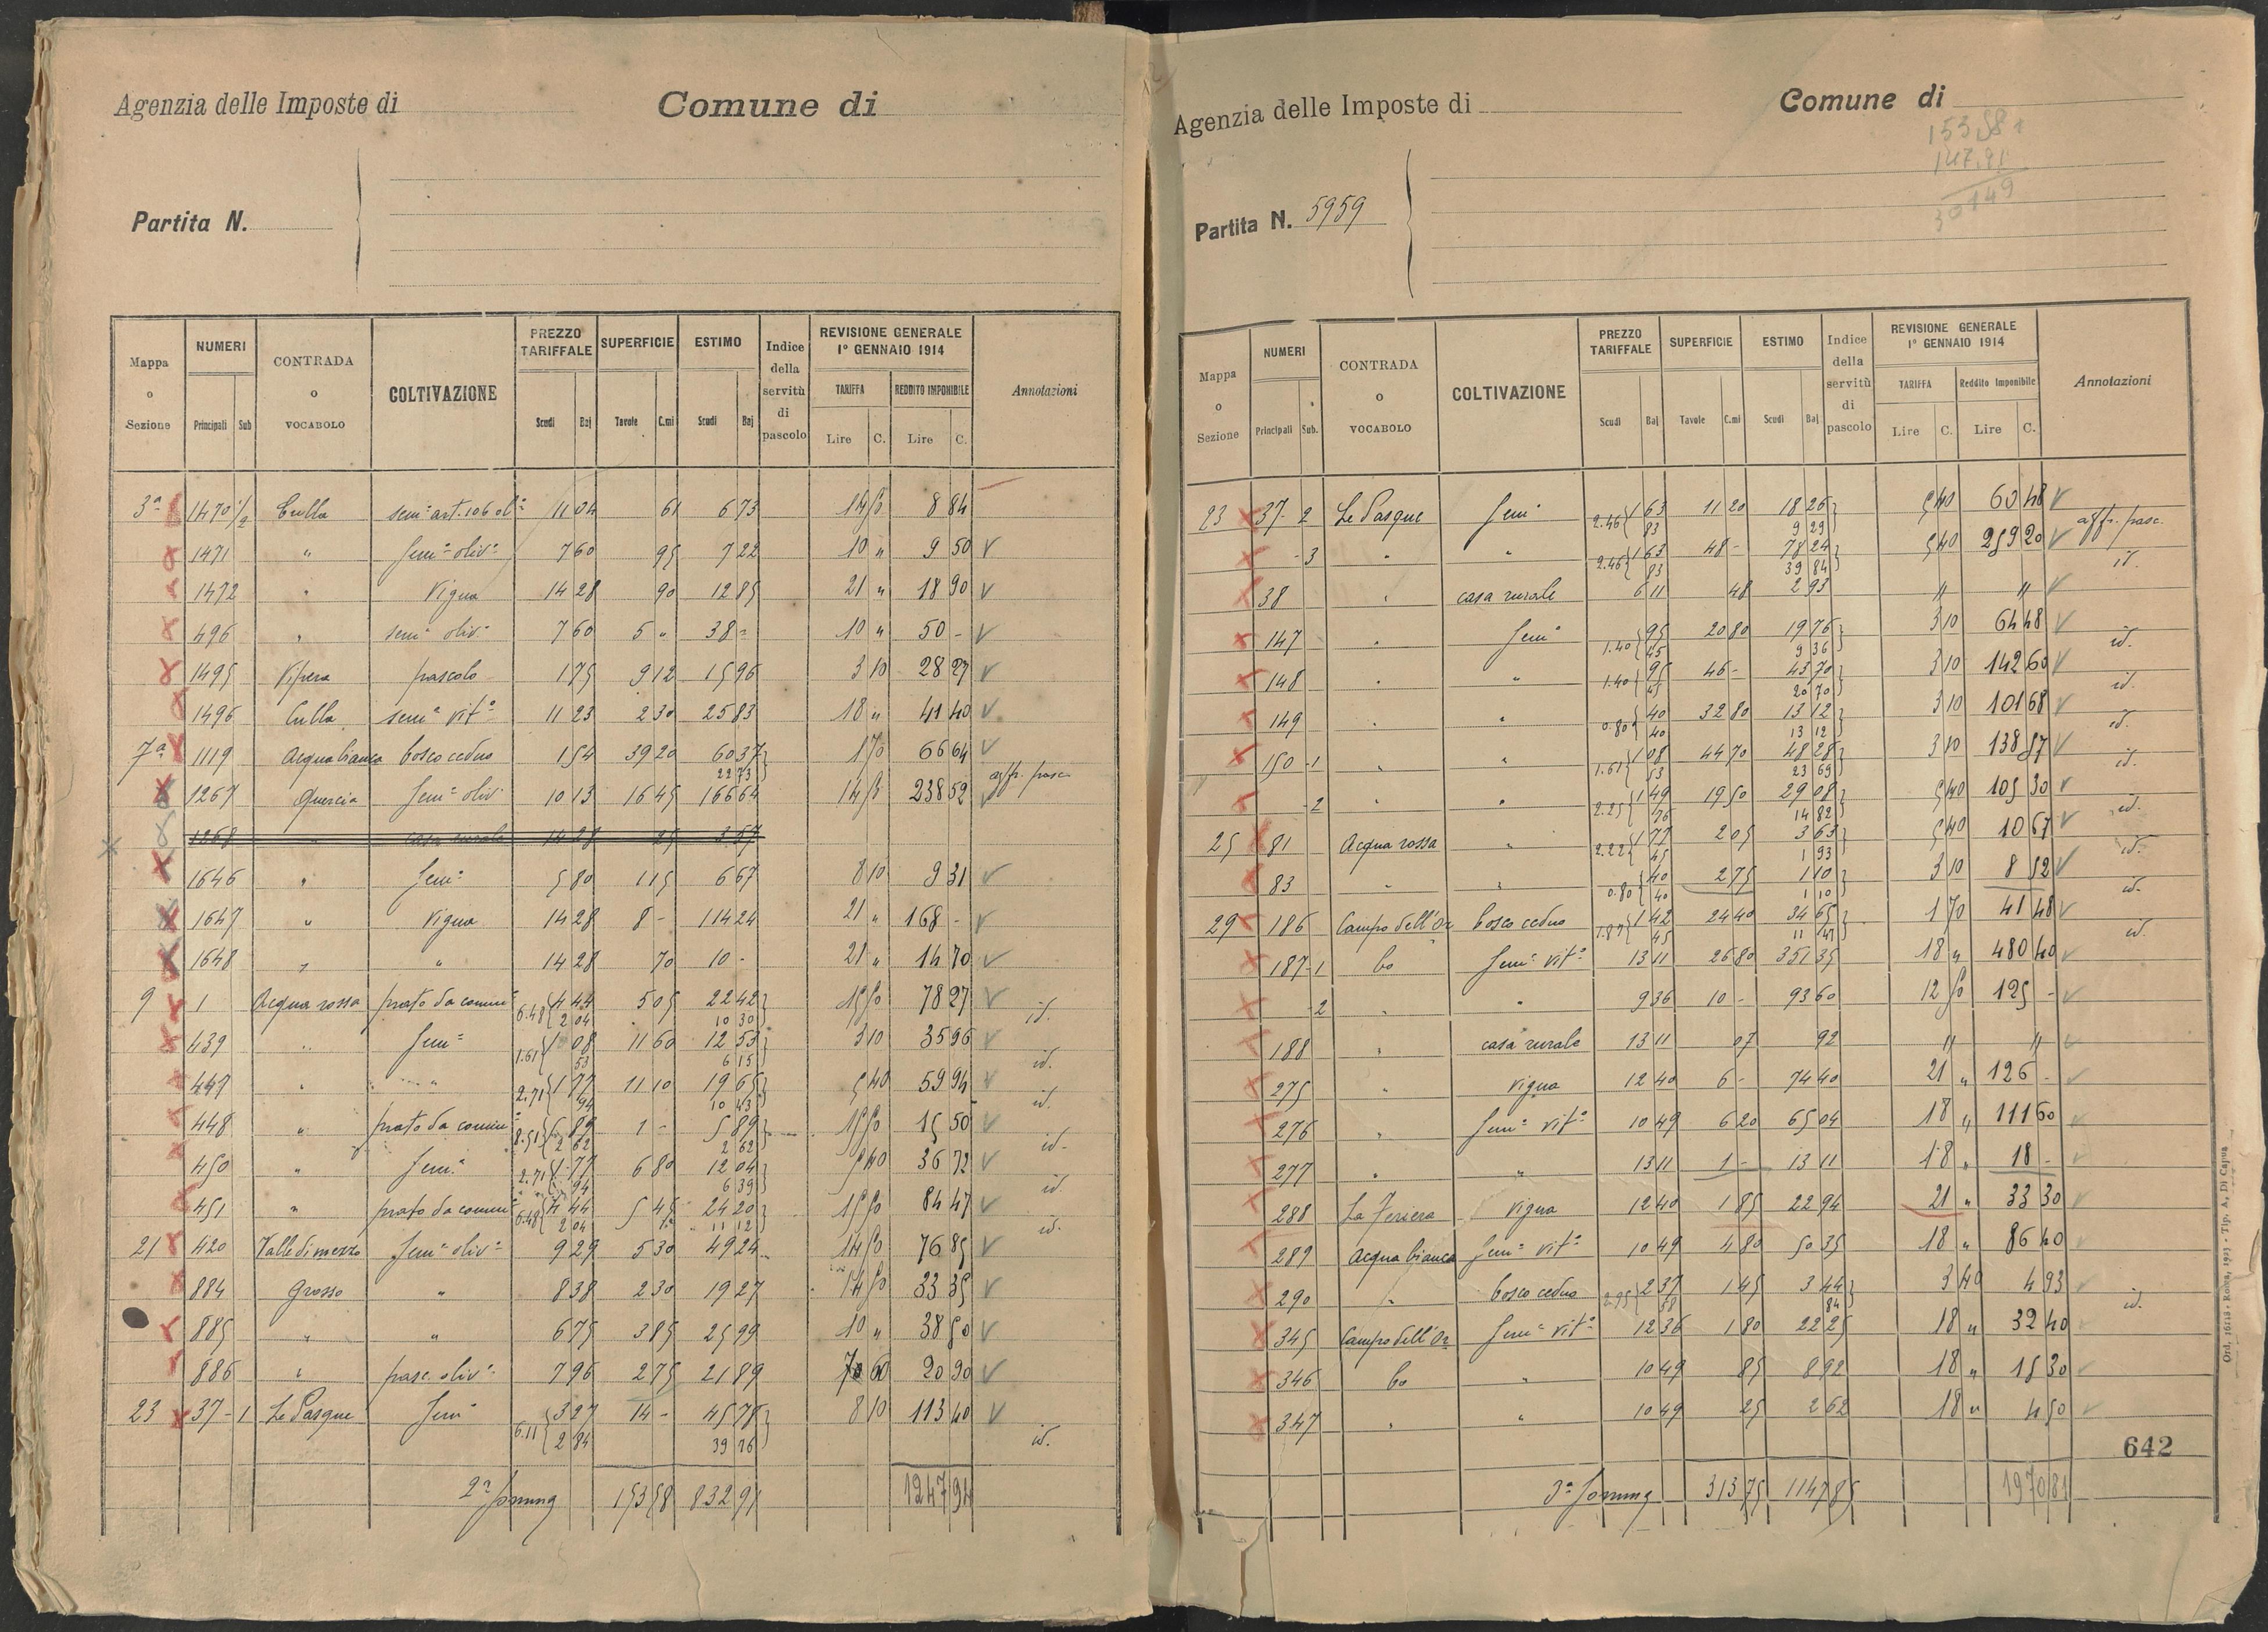 Agenzia delle Imposte di
Comune di
Partita N.
Mappa o Sezione | NUMERI Principali Sub | CONTRADA o VOCABOLO | COLTIVAZIONE | PREZZO TARIFFALE Scudi Baj | SUPERFICIE Tavole C.mi | ESTIMO Scudi Baj | Indice della servitù di pascolo | REVISIONE GENERALE 1º GENNAIO 1914 TARIFFA Lire C. REDDITO IMPONIBILE Lire C. | Annotazioni
3ª 1470 1/2 Culla sem. art. 106 ol. 11 04 61 6 73 14 50 8 84
1471 " Sem. oliv. 7 60 95 7 22 10 " 9 50 V
1472 " Vigna 14 28 90 12 85 21 " 18 90 V
496 " sem. oliv. 7 60 5 " 38 - 10 " 50 - V
1495 Vipera pascolo 1 75 9 12 15 96 3 10 28 27 V
1496 Culla sem. vit. 11 23 2 30 25 83 18 " 41 40 V
7ª 1119 Acqua bianca bosco ceduo 1 54 39 20 60 37 1 70 66 64 V
22 73 aff. pasc.
1267 Quercia Sem. oliv. 10 13 16 45 166 64 14 50 238 52 V
1268 " casa rurale 14 28 25 3 57
1646 " Sem. 5 80 1 15 6 67 8 10 9 31 V
1647 " Vigna 14 28 8 - 114 24 21 " 168 - V
1648 " " 14 28 70 10 - 21 " 14 70 V
9 1 Acqua rossa prato da comun. 6.48 4 44 5 05 22 42 15 50 78 27 V
2 04 10 30 id.
439 " Sem. 1.61 1 08 11 60 12 53 3 10 35 96 V
53 6 15 id.
449 " " 2.71 1 77 11 10 19 65 5 40 59 94 V
94 10 43 id.
448 " prato da comun. 8.51 5 89 1 - 5 89 15 50 15 50 V
2 62 2 62 id.
450 " Sem. 2.71 1 77 6 80 12 04 5 40 36 72 V
94 6 39 id.
451 " prato da comun. 6.48 4 44 5 45 24 20 15 50 84 47 V
2 04 11 12 id.
21 420 Valle di mezzo Sem. oliv. 9 29 5 30 49 24 14 50 76 85 V
884 Grosso " 8 38 2 30 19 27 14 50 33 35 V
885 " " 6 75 3 85 25 99 10 " 38 50 V
886 " pasc. oliv. 7 96 2 75 21 89 7 60 20 90 V
23 37 - 1 Le Pasque Sem. 6.11 3 27 14 - 45 78 8 10 113 40 V
2 84 39 76 id.
2ª Somma 153 58 832 91 1247 94
Agenzia delle Imposte di
Comune di
153,58
147.91
30149
Partita N. 5959
Mappa o Sezione | NUMERI Principali Sub. | CONTRADA o VOCABOLO | COLTIVAZIONE | PREZZO TARIFFALE Scudi Baj | SUPERFICIE Tavole C.mi | ESTIMO Scudi Baj | Indice della servitù di pascolo | REVISIONE GENERALE 1º GENNAIO 1914 TARIFFA Lire C. Reddito Imponibile Lire C. | Annotazioni
23 37 - 2 Le Pasque Sem. 2.46 1 63 11 20 18 26 5 40 60 48 V
83 9 29 aff. pasc.
- 3 " " 2.46 1 63 48 - 78 24 5 40 259 20 V
83 39 84 id.
38 " casa rurale 6 11 48 2 93 " " V
147 " Sem. 1.40 95 20 80 19 76 3 10 64 48 V
45 9 36 id.
148 " " 1.40 95 46 - 43 70 3 10 142 60 V
45 20 70 id.
149 " " 0.80 40 32 80 13 12 3 10 101 68 V
40 13 12 id.
150 - 1 " " 1.61 1 08 44 70 48 28 3 10 138 57 V
53 23 69 id.
2 " " 2.25 1 49 19 50 29 08 5 40 105 30 V
76 14 82 id.
25 81 Acqua rossa " 2.22 1 77 2 05 3 63 5 40 10 67 V
45 1 93 id.
83 " " 0.80 40 2 75 1 10 3 10 8 52 V
40 1 10 id.
29 186 Campo dell'Or bosco ceduo 1.87 1 42 24 40 34 65 1 70 41 48 V
45 11 47 id.
187 - 1 bo Sem. vit. 13 11 26 80 351 35 18 " 480 40 V
2 " " 9 36 10 - 93 60 12 50 125 - V
188 " casa rurale 13 11 07 92 " " V
275 " Vigna 12 40 6 - 74 40 21 " 126 - V
276 " Sem. vit. 10 49 6 20 65 04 18 " 111 60 V
277 " " 13 11 1 - 13 11 18 " 18 - V
288 Vigna 12 40 1 85 22 94 21 " 33 30 V
289 Acqua bianca Sem. vit. 10 49 4 80 50 35 18 " 86 40 V
290 " bosco ceduo 2.95 2 37 1 45 3 44 3 40 4 93 V
58 84 id.
345 Campo dell'Or Sem. vit. 12 36 1 80 22 25 18 " 32 40
346 bo " 10 49 85 8 92 18 " 15 30 V
347 " " 10 49 25 2 62 18 " 4 50 V
642
3ª Somma 313 75 1147 85 1970 81